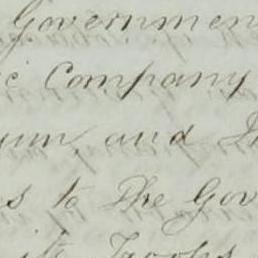 Government
c Company
um, and
s to The Gov
its Troops